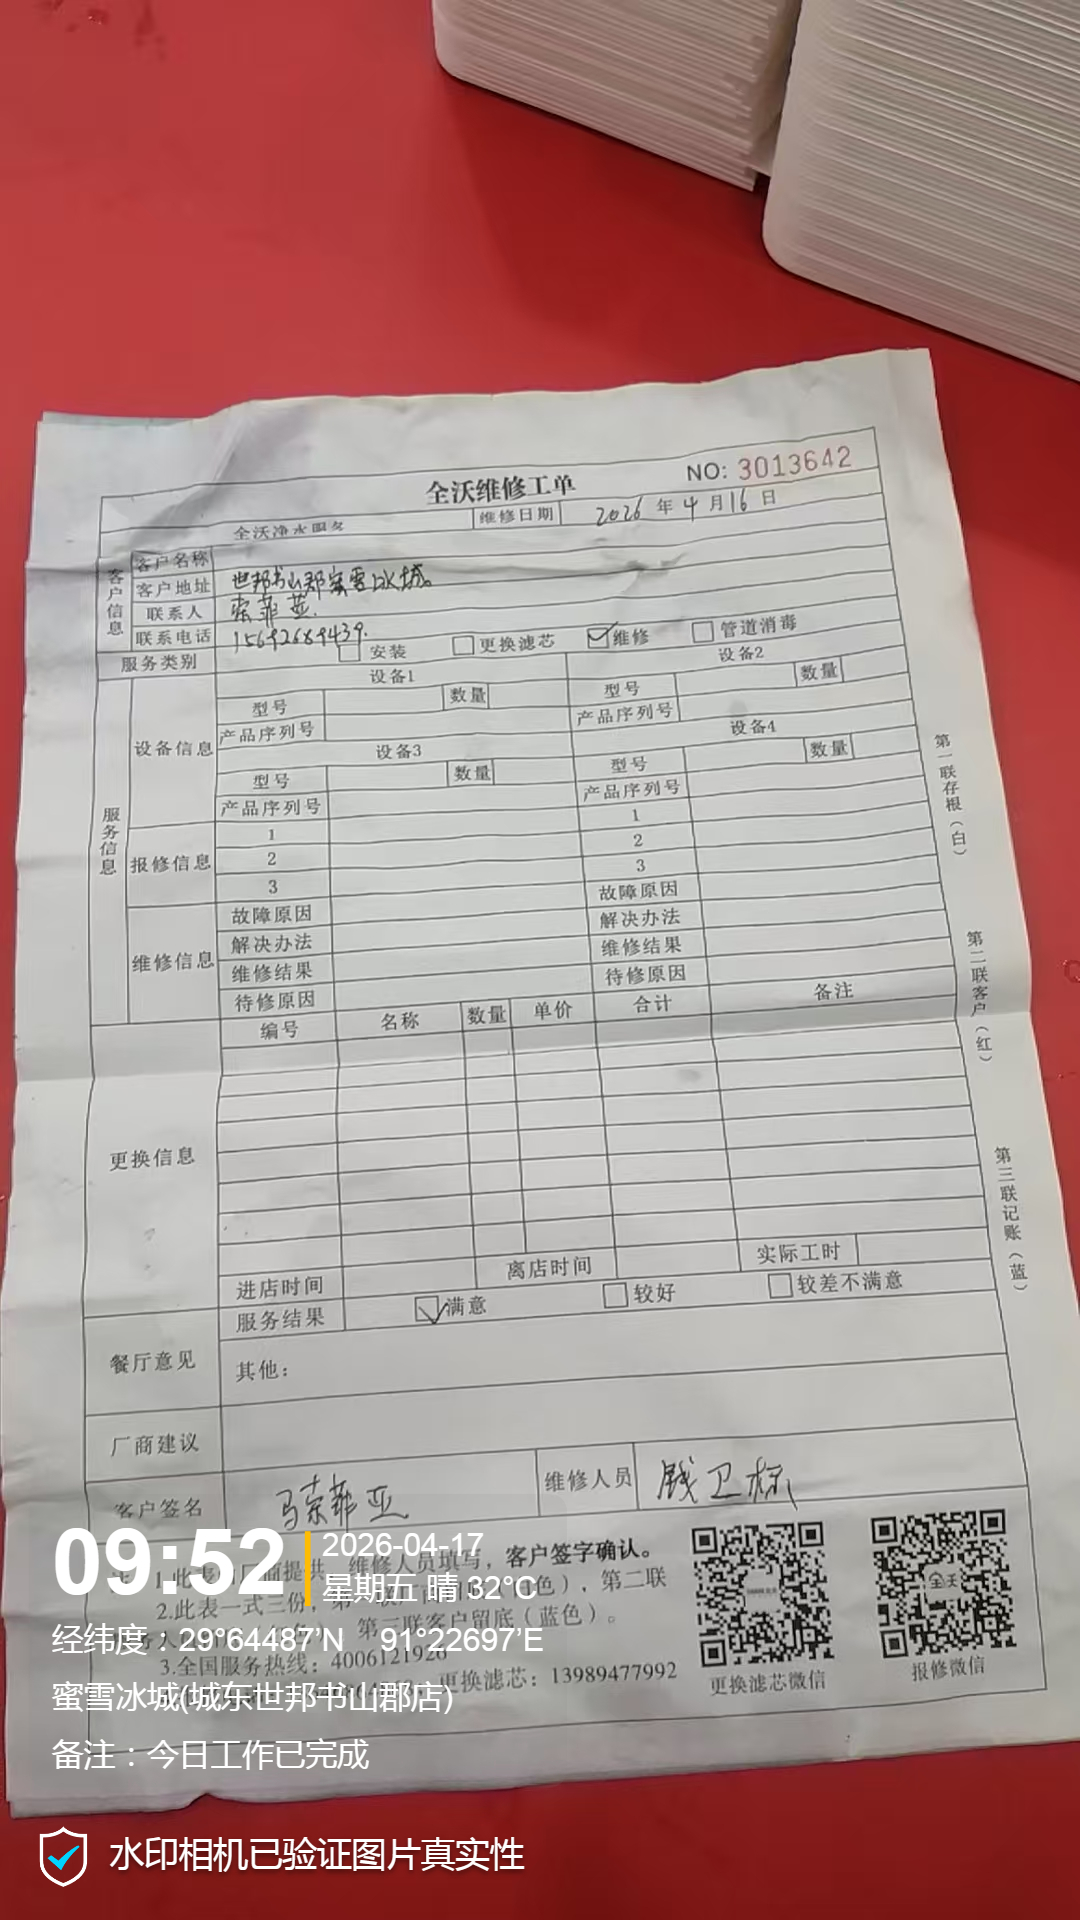 NO: 3013642
全沃维修工单
全沃净水服务 维修日期 2026 年 4 月 16 日
客户信息
客户名称
客户地址 世邦书山郡蜜雪冰城
联系人 索菲亚
联系电话 15692689439
服务类别 安装 更换滤芯 维修 管道消毒
服务信息
设备信息
设备1 设备2
型号 数量 型号 数量
产品序列号 产品序列号
设备3 设备4
型号 数量 型号 数量
产品序列号 产品序列号
报修信息
1 1
2 2
3 3
维修信息
故障原因 故障原因
解决办法 解决办法
维修结果 维修结果
待修原因 待修原因
更换信息
编号 名称 数量 单价 合计 备注
进店时间 离店时间 实际工时
餐厅意见
服务结果 满意 较好 较差不满意
其他：
厂商建议
客户签名 马索菲亚 维修人员 钱卫标
1.此表 厂商提供 维修人员填写，客户签字确认。
2.此表一式三份， 色），第二联
第三联客户留底（蓝色）。
3.全国服务热线：4006121926
更换滤芯：13989477992
更换滤芯微信 报修微信
第一联存根（白）
第二联客户（红）
第三联记账（蓝）
09:52
2026-04-17
星期五 晴 32°C
经纬度：29°64487'N 91°22697'E
蜜雪冰城(城东世邦书山郡店)
备注：今日工作已完成
水印相机已验证图片真实性